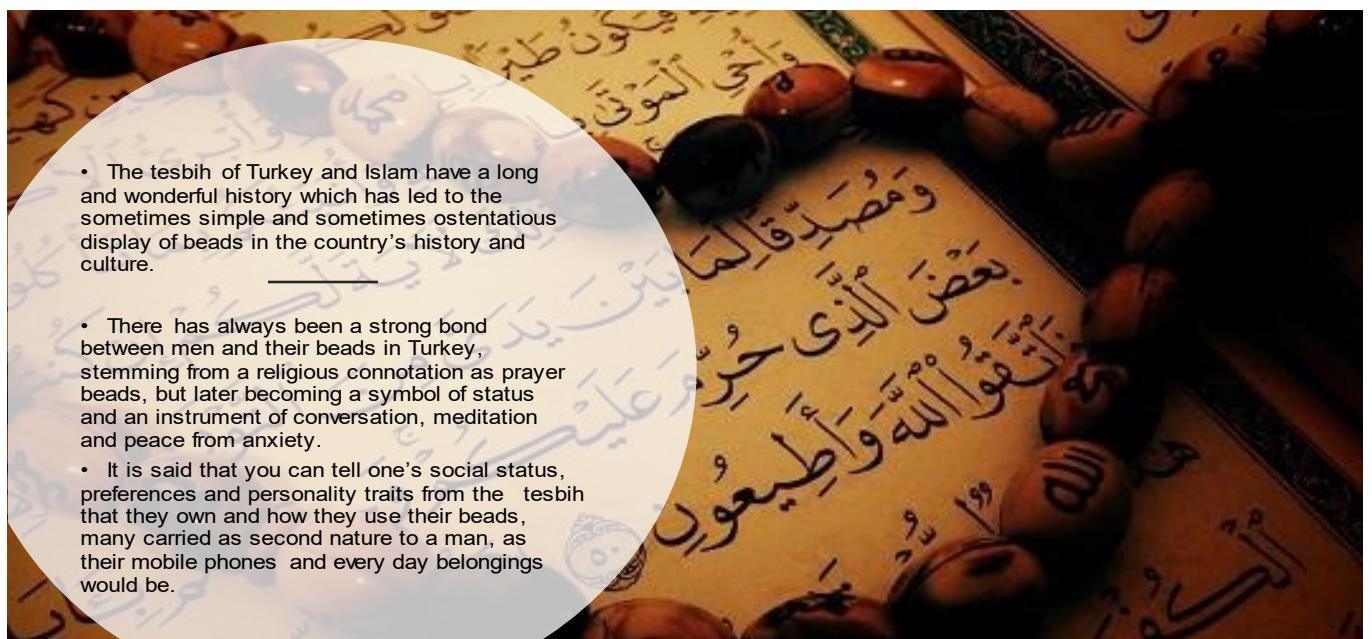 • The tesbih of Turkey and Islam have a long
and wonderful history which has led to the
sometimes simple and sometimes ostentatious
display of beads in the country’s history and
culture.
• There has always been a strong bond
between men and their beads in Turkey,
stemming from a religious connotation as prayer
beads, but later becoming a symbol of status
and an instrument of conversation, meditation
and peace from anxiety.
• It is said that you can tell one’s social status,
preferences and personality traits from the tesbih
that they own and how they use their beads,
many carried as second nature to a man, as
their mobile phones and every day belongings
would be.
فَيَكُونُ طَيْرًا
وَأُحْيِ ٱلْمَوْتَىٰ
وَمُصَدِّقًا لِّمَا بَيْنَ يَدَىَّ
بَعْضَ ٱلَّذِى حُرِّمَ عَلَيْكُمْ
فَٱتَّقُوا۟ ٱللَّهَ وَأَطِيعُونِ
٥٠
محمد
الله